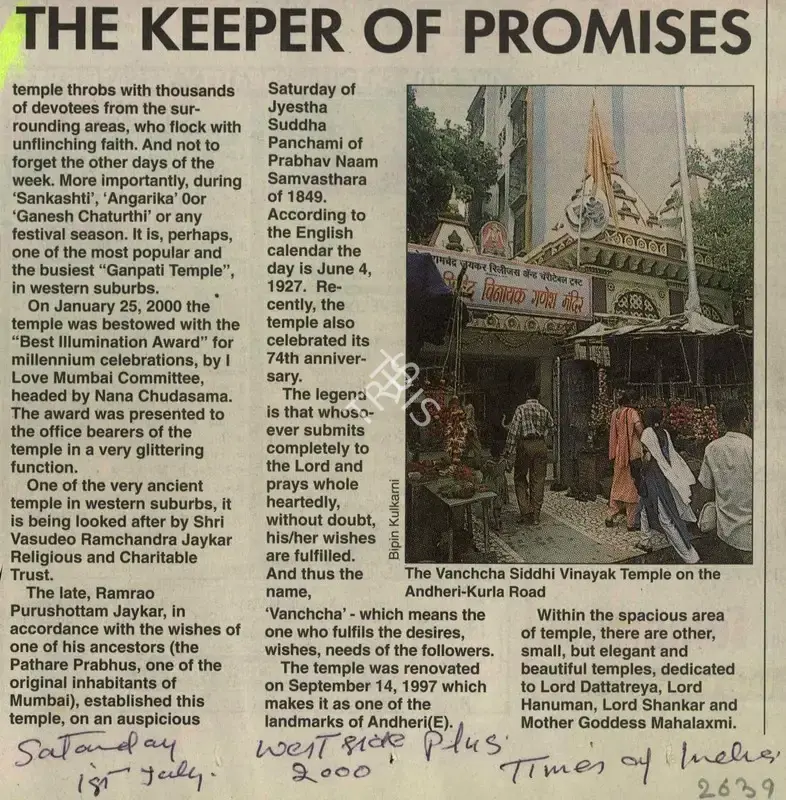 THE KEEPER OF PROMISES
temple throbs with thousands
of devotees from the sur-
rounding areas, who flock with
unflinching faith. And not to
forget the other days of the
week. More importantly, during
'Sankashti', 'Angarika' 0or
'Ganesh Chaturthi' or any
festival season. It is, perhaps,
one of the most popular and
the busiest "Ganpati Temple",
in western suburbs.
On January 25, 2000 the
temple was bestowed with the
"Best Illumination Award" for
millennium celebrations, by I
Love Mumbai Committee,
headed by Nana Chudasama.
The award was presented to
the office bearers of the
temple in a very glittering
function.
One of the very ancient
temple in western suburbs, it
is being looked after by Shri
Vasudeo Ramchandra Jaykar
Religious and Charitable
Trust.
The late, Ramrao
Purushottam Jaykar, in
accordance with the wishes of
one of his ancestors (the
Pathare Prabhus, one of the
original inhabitants of
Mumbai), established this
temple, on an auspicious
Saturday of
Jyestha
Suddha
Panchami of
Prabhav Naam
Samvasthara
of 1849.
According to
the English
calendar the
day is June 4,
1927. Re-
cently, the
temple also
celebrated its
74th anniver-
sary.
The legend
is that whoso-
ever submits
completely to
the Lord and
prays whole
heartedly,
without doubt,
his/her wishes
are fulfilled.
And thus the
name,
'Vanchcha' - which means the
one who fulfils the desires,
wishes, needs of the followers.
The temple was renovated
on September 14, 1997 which
makes it as one of the
landmarks of Andheri(E).
रामचंद्र जयकर रिलीजस ॲन्ड चॅरीटेबल ट्रस्ट
विनायक गणेश मंदिर
Bipin Kulkarni
The Vanchcha Siddhi Vinayak Temple on the
Andheri-Kurla Road
Within the spacious area
of temple, there are other,
small, but elegant and
beautiful temples, dedicated
to Lord Dattatreya, Lord
Hanuman, Lord Shankar and
Mother Goddess Mahalaxmi.
Saturday
1st July.
West side Plus.
2000
Times of India.
2639